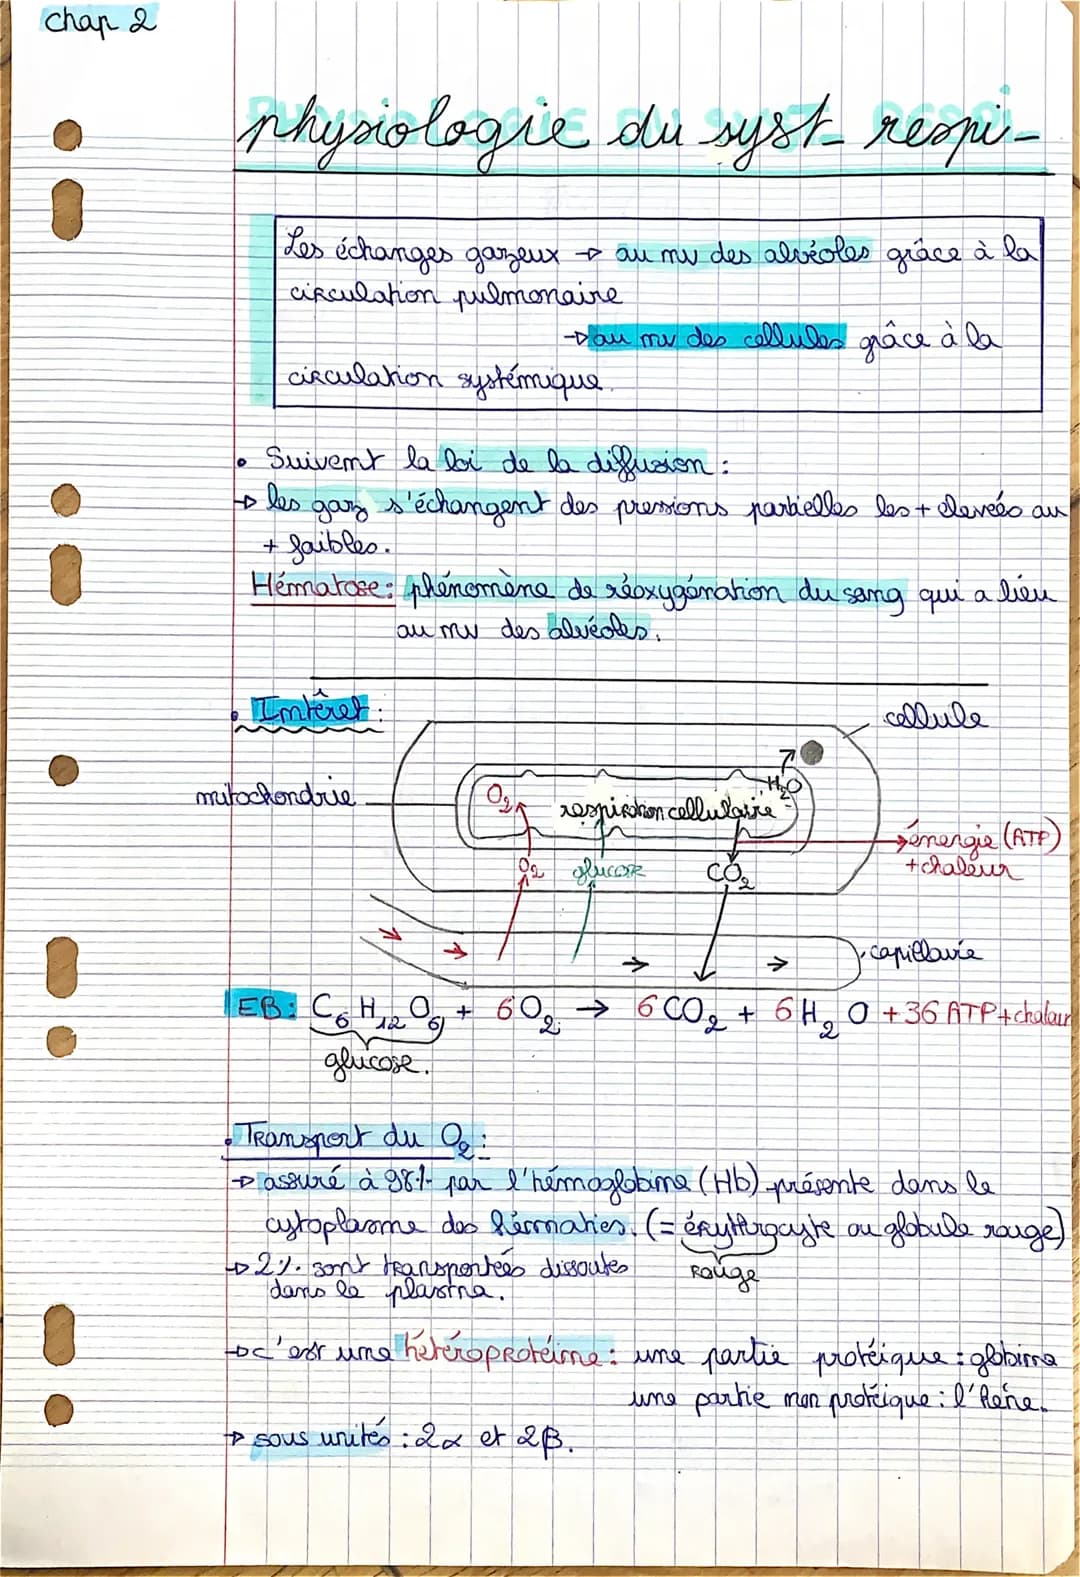 chap 2
physiologie du syst- respi-
Les échanges gazeux → au nv des alvéoles grâce à la
circulation pulmonaire
→ au nv des cellules grâce à la
circulation systémique.
• Suivent la loi de la diffusion :
→ les gaz s'échangent des pressions partielles les + élevées au
+ faibles.
Hématose : phénomène de réoxygénation du sang qui a lieu
au nv des alvéoles.
• Intêret :
cellule
mitochondrie
O₂
respiration cellulaire
H₂O
O₂
glucose
CO₂
énergie (ATP)
+ chaleur
capillaire
EB : C₆H₁₂O₆ + 6O₂ → 6CO₂ + 6H₂O + 36 ATP + chaleur
glucose.
• Transport du O₂ :
→ assuré à 98% par l'hémoglobine (Hb) présente dans le
cytoplasme des hématies. (= érythrocyte ou globule rouge)
→ 2%. sont transportées dissoutes
rouge
dans le plasma.
→ c'est une hétéroprotéine : une partie protéique : globine
une partie non protéique : l'hène.
→ sous unités : 2α et 2β.